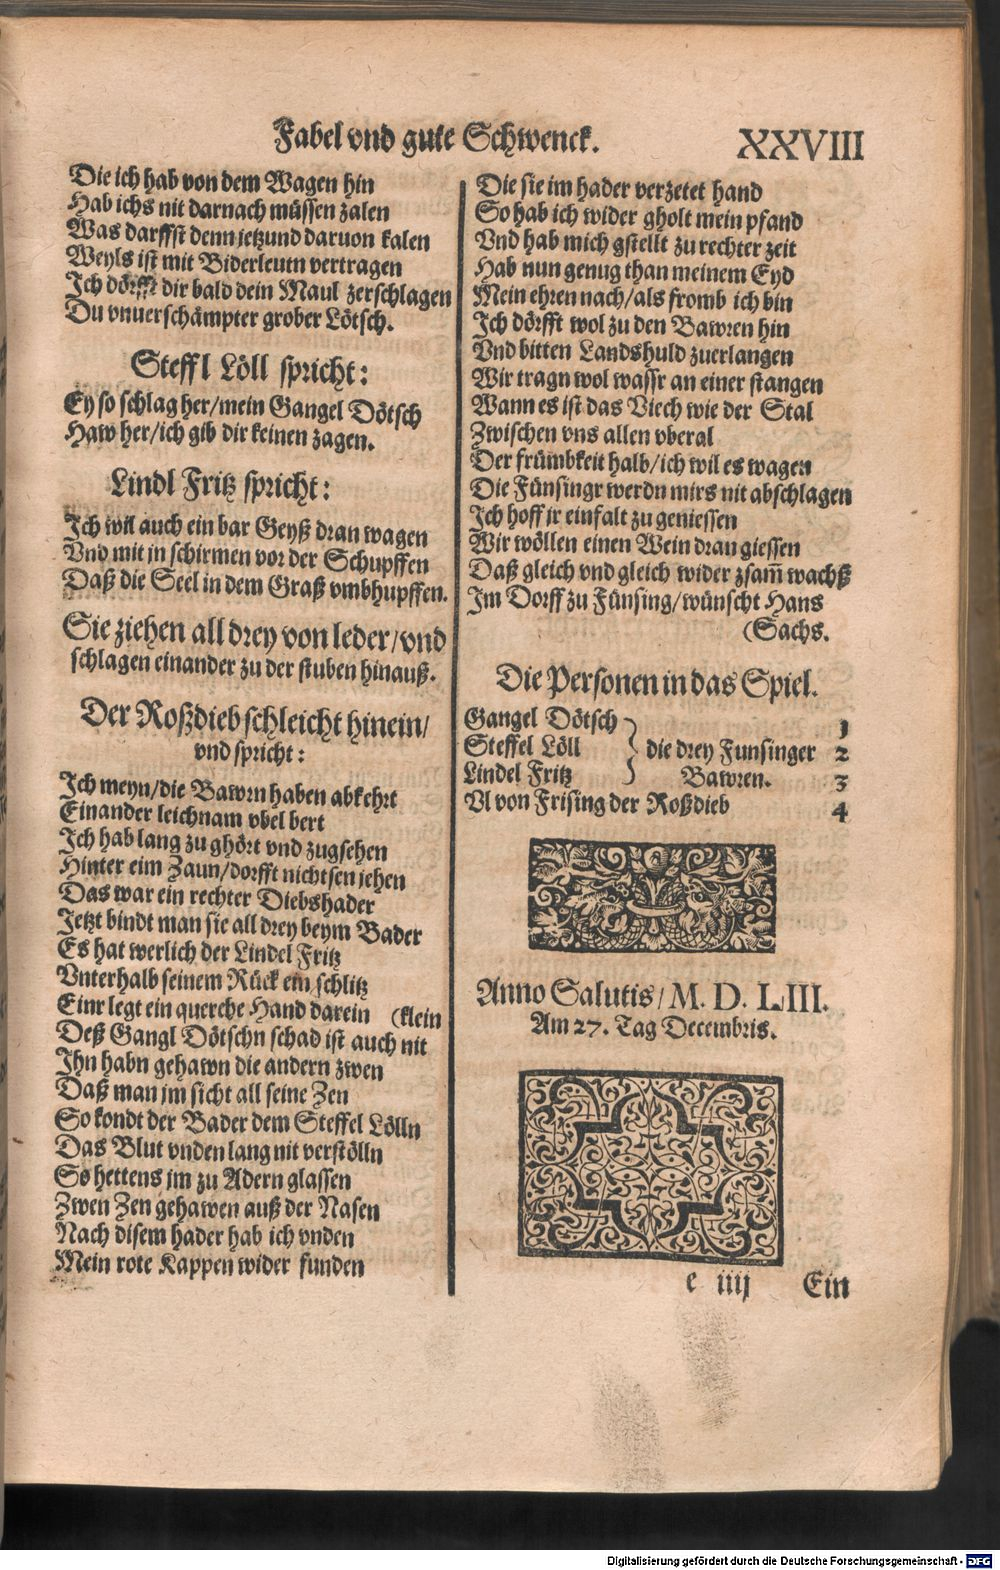 Fabel vnd gute Schwenck. XXVIII
Die ich hab von dem Wagen hin
Hab ichs nit darnach müssen zalen
Was darffst denn jetzund daruon kalen
Weyls ist mit Biderleutn vertragen
Ich dörfft dir bald dein Maul zerschlagen
Du vnuerschämpter grober Lötsch.
Steffl Löll spricht:
Ey so schlag her/mein Gangel Dötsch
Haw her/ich gib dir keinen zagen.
Lindl Fritz spricht:
Ich wil auch ein bar Geyß dran wagen
Vnd mit in schirmen vor der Schupffen
Daß die Seel in dem Graß vmbhupffen.
Sie ziehen all drey von leder/vnd
schlagen einander zu der stuben hinauß.
Der Roßdieb schleicht hinein/
vnd spricht:
Ich meyn/die Bawrn haben abkehrt
Einander leichnam vbel bert
Ich hab lang zu ghört vnd zugsehen
Hinter eim Zaun/dorfft nichtsen jehen
Das war ein rechter Diebshader
Jetzt bindt man sie all drey beym Bader
Es hat werlich der Lindel Fritz
Vnterhalb seinem Rück ein schlitz
Einr legt ein querche Hand darein (klein
Deß Gangl Dötschn schad ist auch nit
Ihn habn gehawn die andern zwen
Daß man jm sicht all seine Zen
So kondt der Bader dem Steffel Lölln
Das Blut vnden lang nit verstölln
So hettens jm zu Adern glassen
Zwen Zen gehawen auß der Nasen
Nach disem hader hab ich vnden
Mein rote Kappen wider funden
Die sie im hader verzetet hand
So hab ich wider gholt mein pfand
Vnd hab mich gstellt zu rechter zeit
Hab nun genug than meinem Eyd
Mein ehren nach/als fromb ich bin
Ich dörfft wol zu den Bawren hin
Vnd bitten Landshuld zuerlangen
Wir tragn wol wassr an einer stangen
Wann es ist das Viech wie der Stal
Zwischen vns allen vberal
Der frümbkeit halb/ich wil es wagen
Die Fünsingr werdn mirs nit abschlagen
Ich hoff jr einfalt zu geniessen
Wir wöllen einen Wein dran giessen
Daß gleich vnd gleich wider zsam̃ wachß
Im Dorff zu Fünsing/wünscht Hans
(Sachs.
Die Personen in das Spiel.
Gangel Dötsch 1
Steffel Löll } die drey Funsinger 2
Lindel Fritz Bawren. 3
Vl von Frising der Roßdieb 4
Anno Salutis/M. D. LIII.
Am 27. Tag Decembris.
e iiij Ein
Digitalisierung gefördert durch die Deutsche Forschungsgemeinschaft - DFG